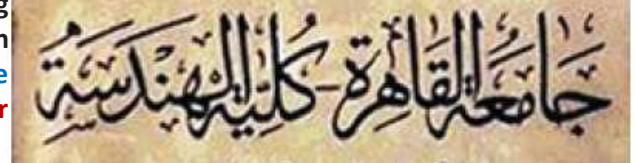 جامعة القاهرة - كلية الهندسة
g
n
e
r